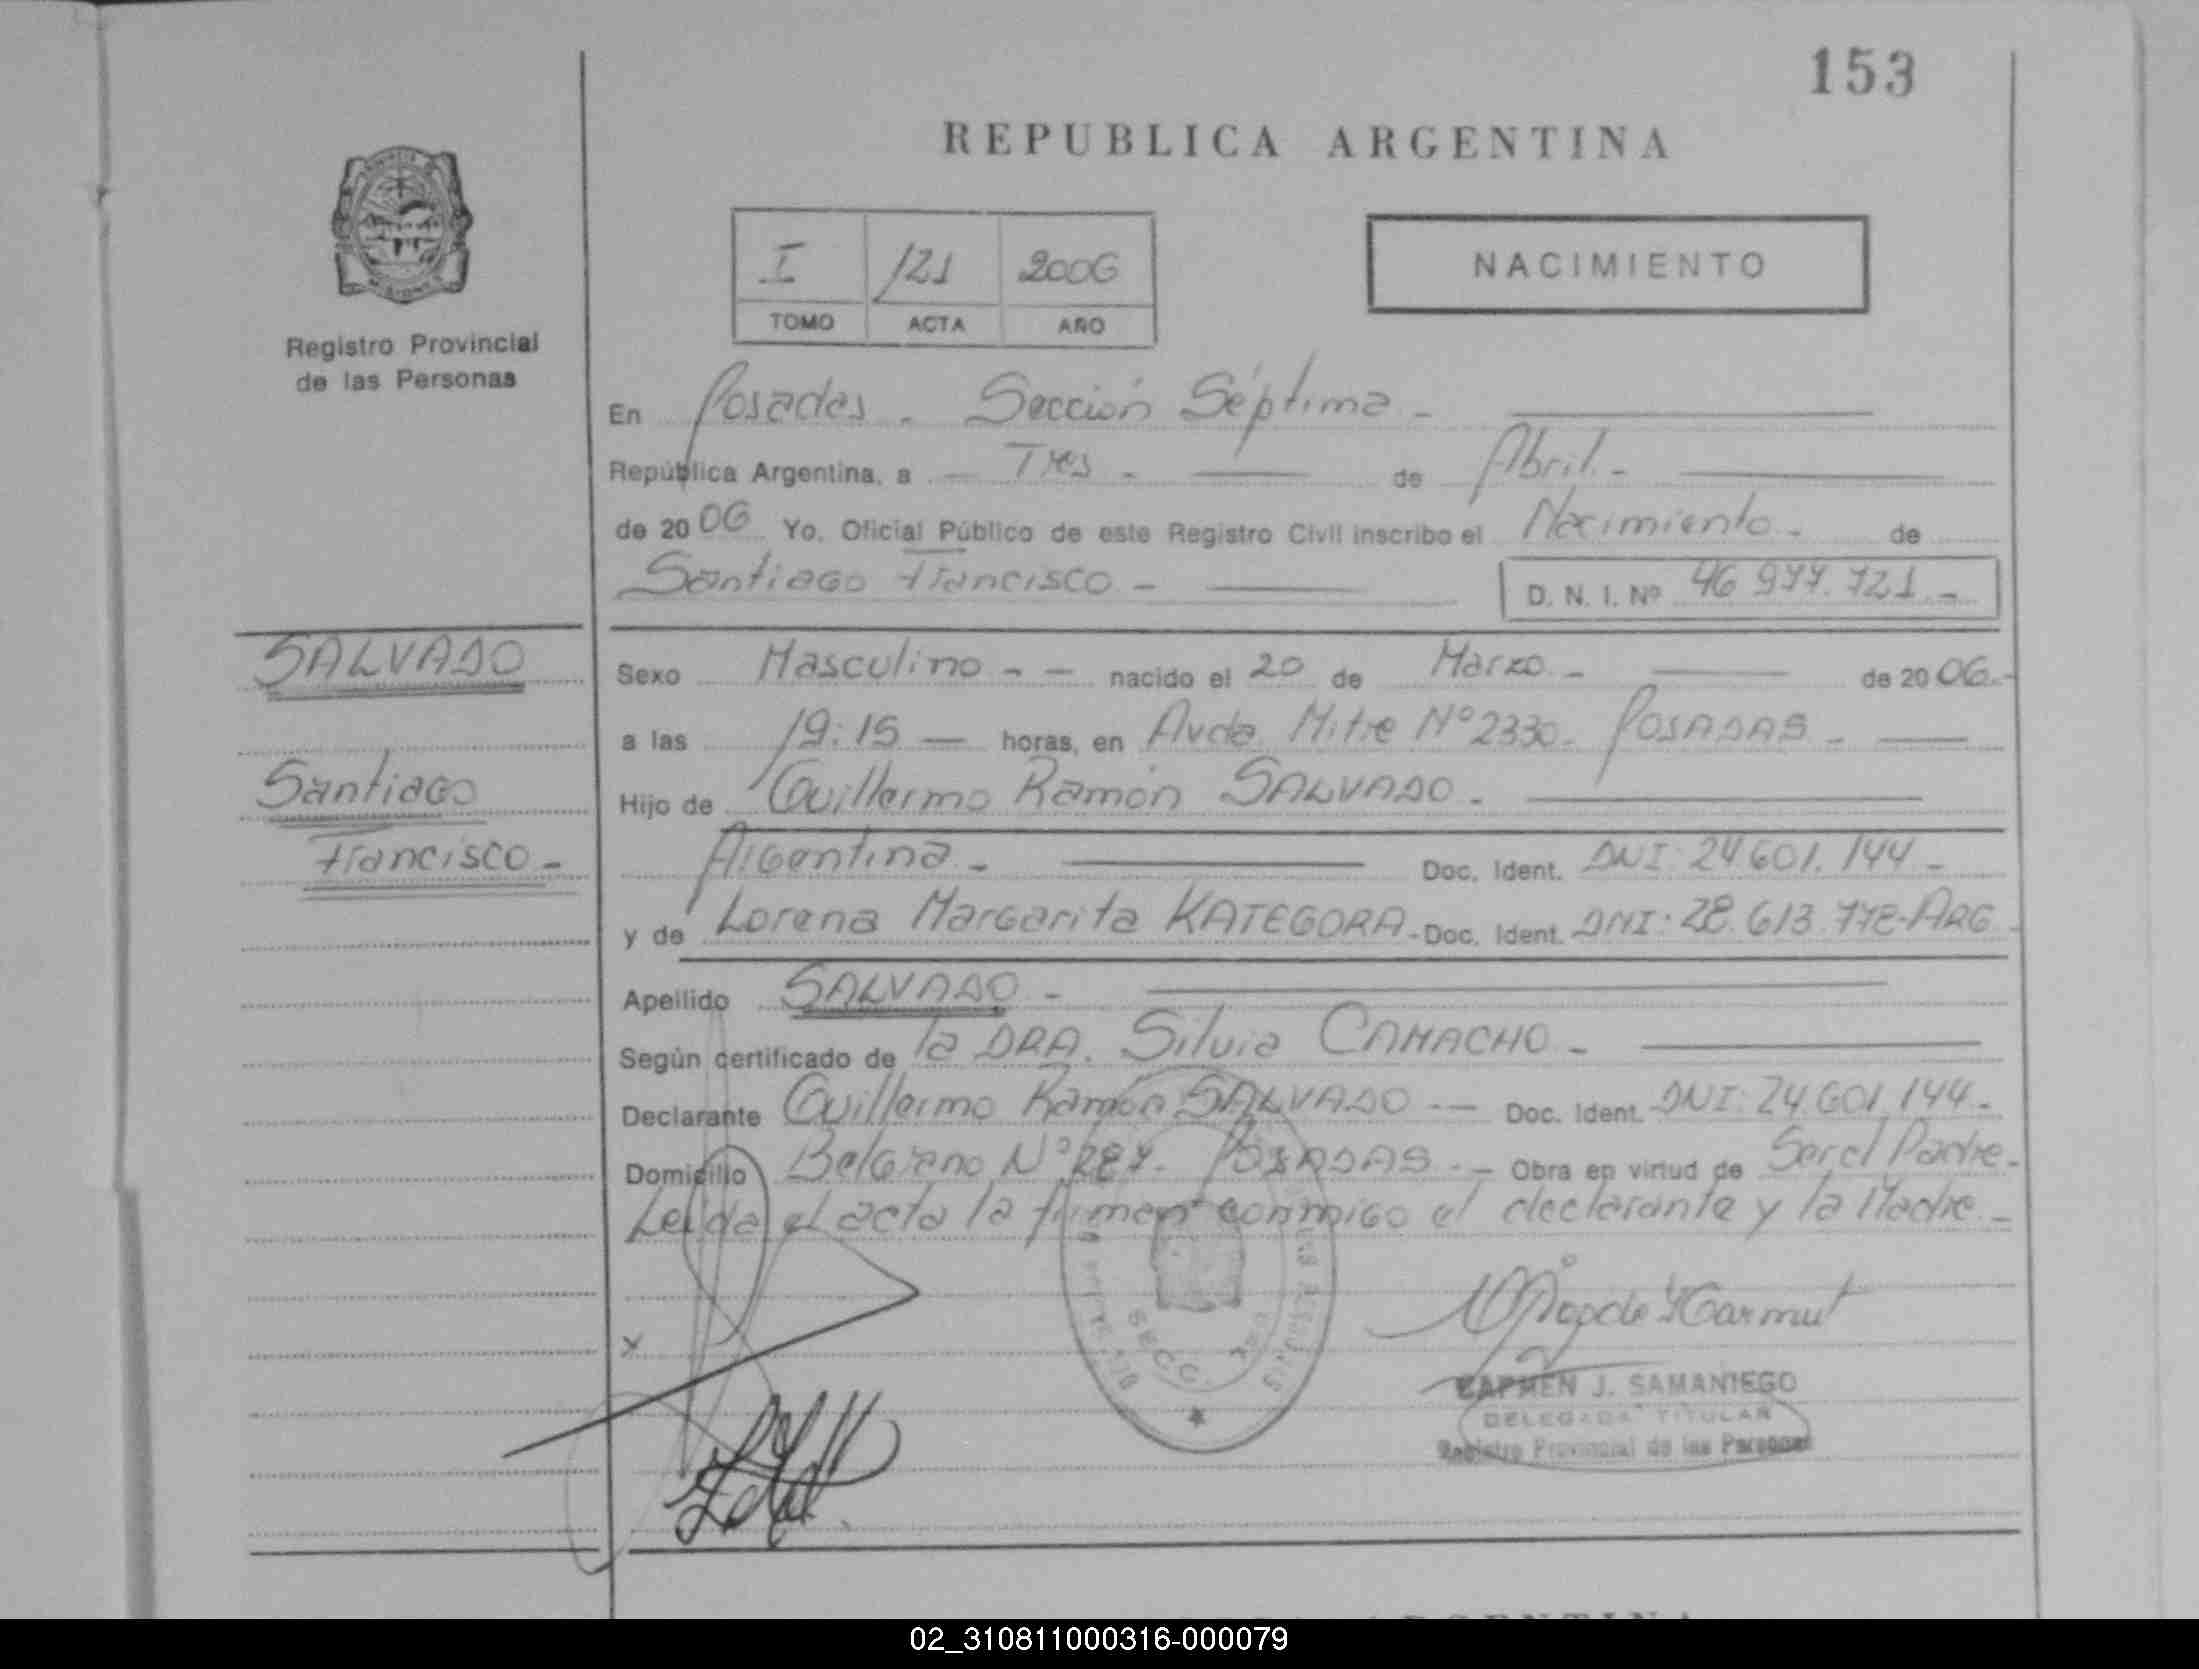 153
REPUBLICA ARGENTINA
I 121 2006
TOMO ACTA AÑO
NACIMIENTO
Registro Provincial
de las Personas
En Posadas - Sección Séptima -
República Argentina, a - Tres - de Abril -
de 2006 Yo, Oficial Público de este Registro Civil inscribo el Nacimiento - de
Santiago Francisco - D. N. I. Nº 46 977.721 -
SALVADO
Santiago
Francisco -
Sexo Masculino - - nacido el 20 de Marzo - de 2006.-
a las 19:15 — horas, en Avda. Mitre Nº 2330 - POSADAS -
Hijo de Guillermo Ramón SALVADO -
Argentina - Doc. Ident. DNI: 24.601.144 -
y de Lorena Margarita KATEGORA - Doc. Ident. DNI: 28.613.778-ARG
Apellido SALVADO -
Según certificado de la DRA. Silvia CAMACHO -
Declarante Guillermo Ramón SALVADO -- Doc. Ident. DNI: 24.601.144 -
Domicilio Belgrano Nº POSADAS -- Obra en virtud de Ser el Padre -
Leida el acta la firman conmigo el declarante y la Madre -
x
SECC.
CARMEN J. SAMANIEGO
DELEGADA TITULAR
Registro Provincial de las Personas
02_310811000316-000079